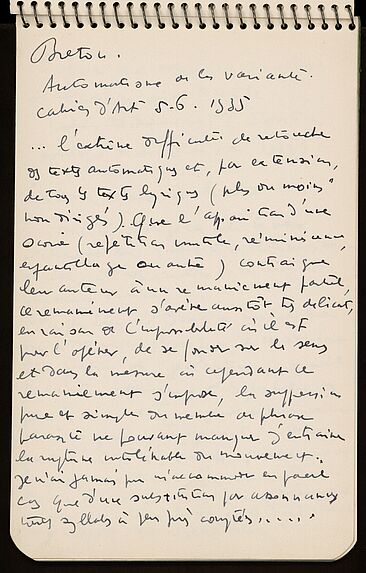 Breton.
Automatisme de la variante.
Cahiers d'Art 5-6. 1935
... l'extrême difficulté de retouche
des textes automatiques et, par extension,
de tous les textes lyriques (plus ou moins
non dirigés). Que l'apparition d'une
scorie (répétition inutile, réminiscence,
enfantillage ou autre) contraigne
leur auteur à un remaniement partiel,
ce remaniement s'avère aussitôt très délicat,
en raison de l'impossibilité où il est
pour l'opérer, de se fonder sur le sens
et dans la mesure où cependant ce
remaniement s'impose, la suppression
pure et simple du membre de phrase
parasite ne pouvant manquer d'entraîner
la rupture intolérable du mouvement.
Je n'ai jamais pu m'accommoder en pareil
cas que d'une substitution par assonances
syllabe à peu près comptés.....